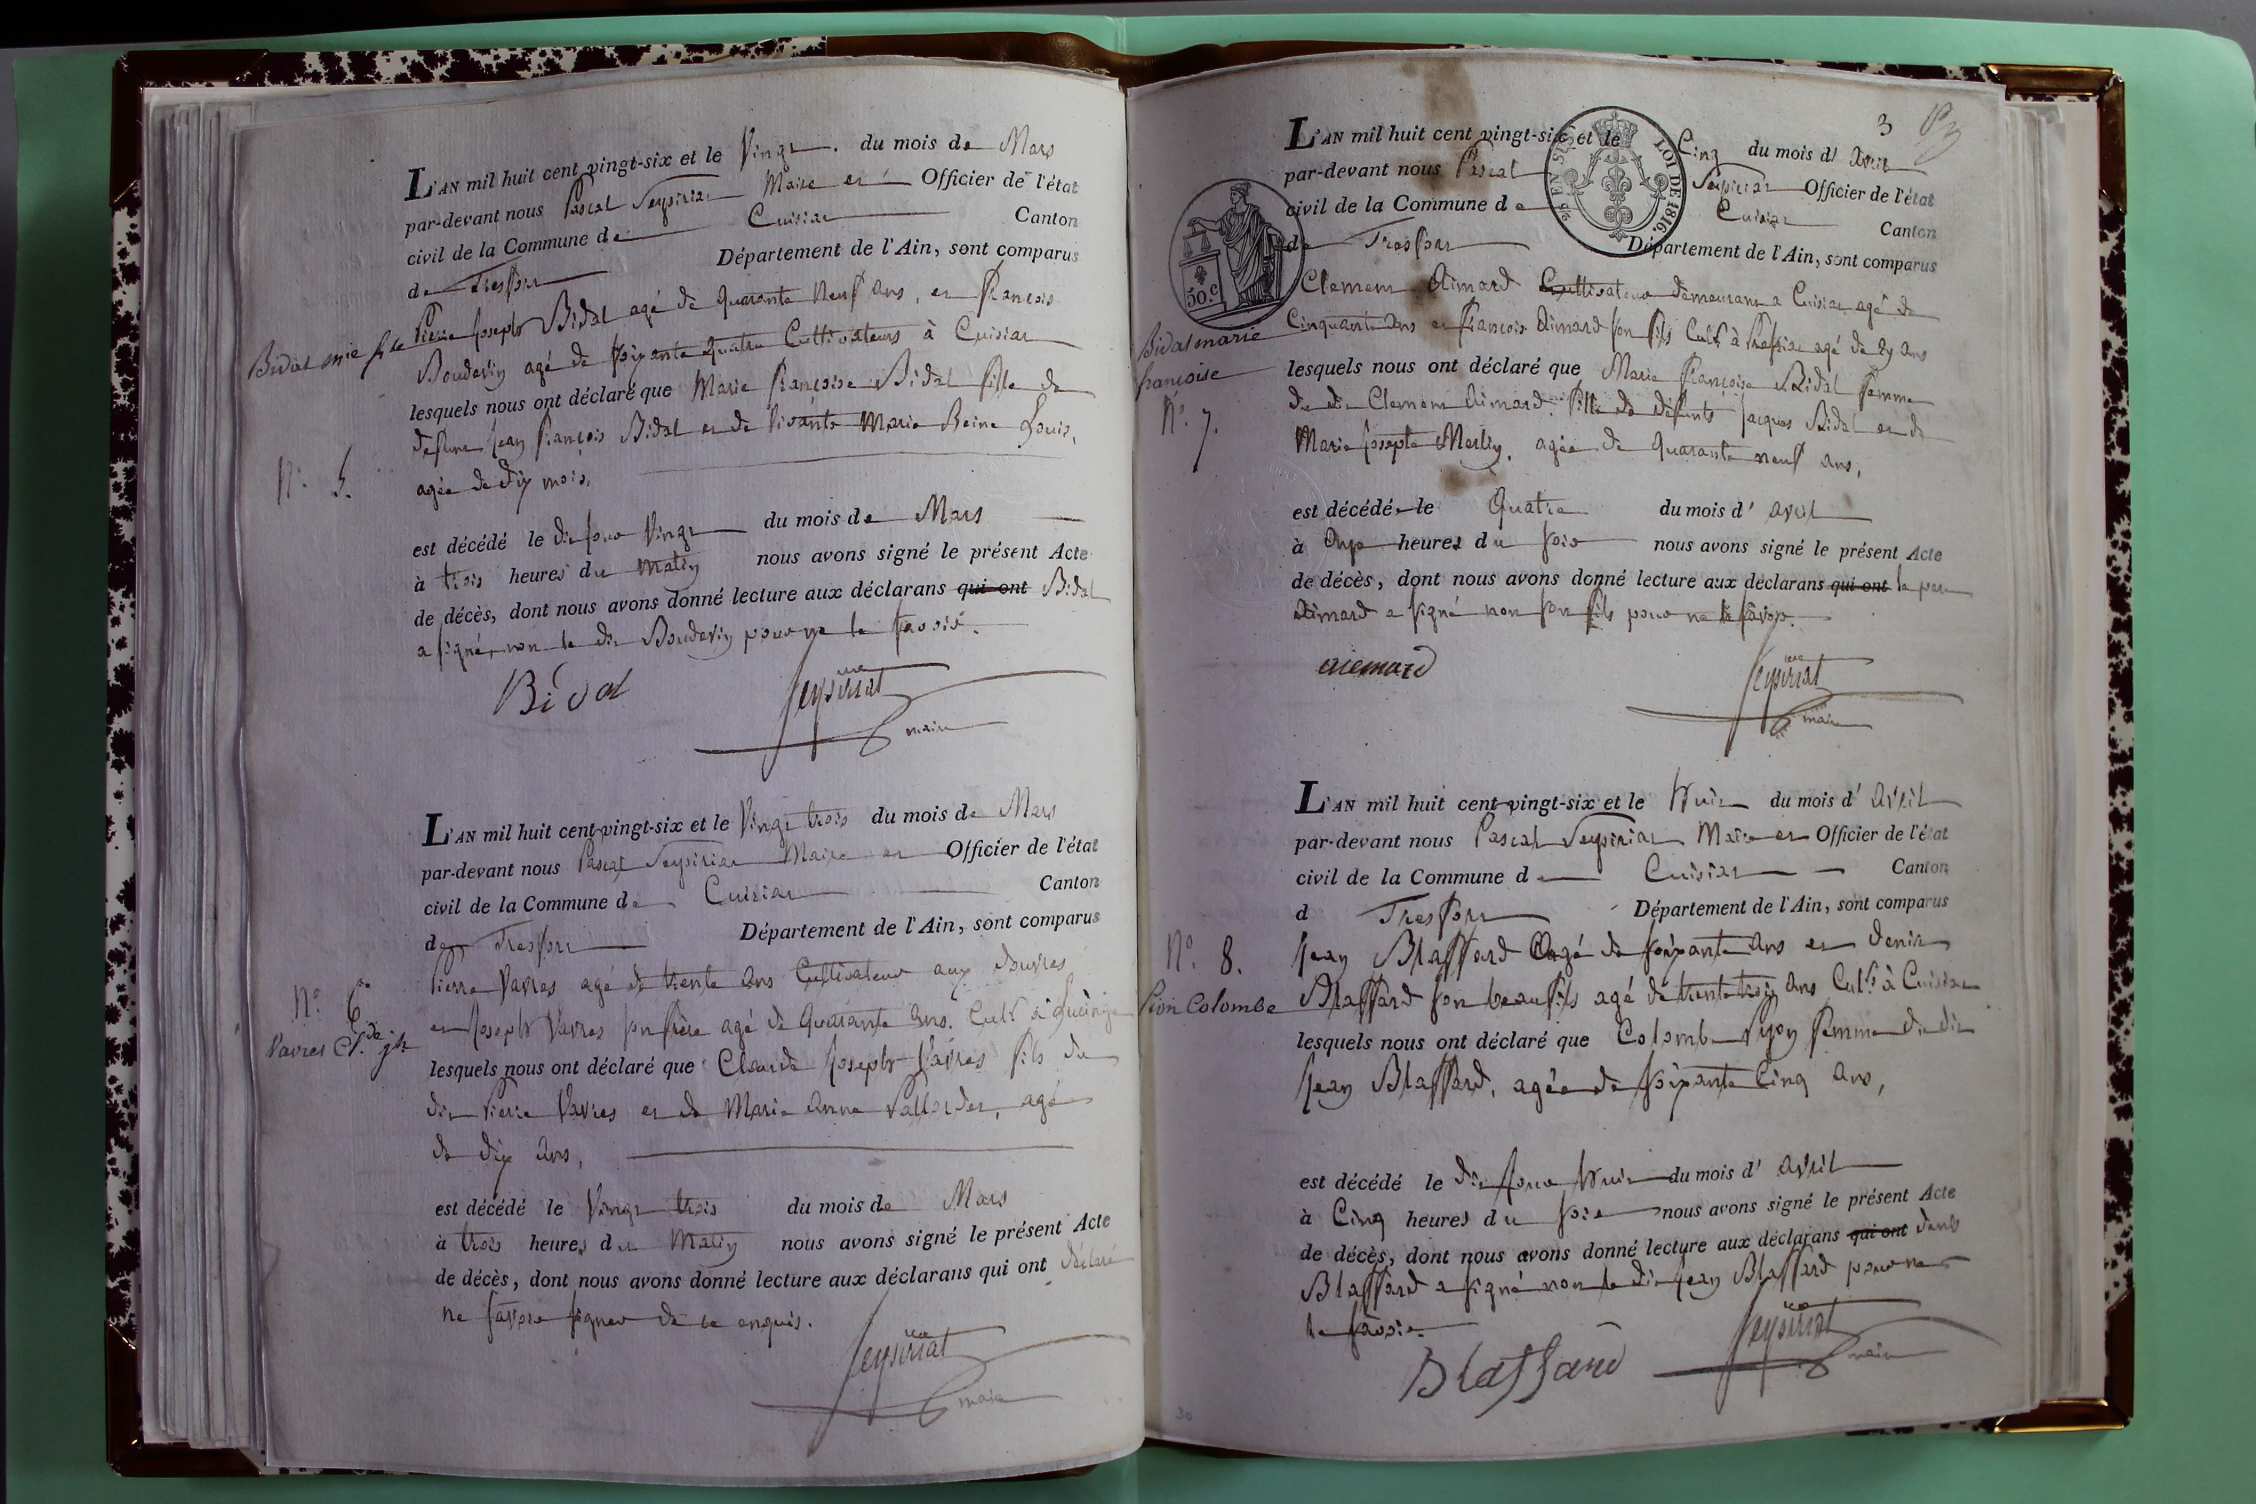 L'AN mil huit cent vingt-six et le Vingt du mois de Mars
par-devant nous Pascal Seysiriat Maire et Officier de l'état
civil de la Commune de Cuisiat Canton
de Tresfort Département de l'Ain, sont comparus
Pierre Joseph Bidal agé de quarante neuf ans, et françois
Bidat mie fse
Boudevin agé de soixante quatre Cultivateurs à Cuisiat
lesquels nous ont déclaré que Marie françoise Bidal fille de
defunt Jean françois Bidal et de vivante Marie Reine Louis,
N.° 5.
agée de dix mois.
est décédé le dit jour Vingt du mois de Mars
à trois heures du matin nous avons signé le présent Acte
de décès, dont nous avons donné lecture aux déclarans qui ont Bidal
a signé, non le dit Boudevin pour ne le savoir.
Bidal Seysiriat
maire
L'AN mil huit cent vingt-six et le Vingt trois du mois de Mars
par-devant nous Pascal Seysiriat Maire et Officier de l'état
civil de la Commune de Cuisiat Canton
de Tresfort Département de l'Ain, sont comparus
Pierre Vavres agé de trente ans Cultivateur aux douvres
N.° 6
et Joseph Vavres son frère agé de Quarante ans. Cultr à
Vavres Cde jh
lesquels nous ont déclaré que Claude Joseph Vavres fils du
dit Pierre Vavres et de Marie Anne agé
de dix ans,
est décédé le Vingt trois du mois de Mars
à trois heures du Matin nous avons signé le présent Acte
de décès, dont nous avons donné lecture aux déclarans qui ont déclaré
ne savoir signer de ce enquis.
Seysiriat
maire
3
L'AN mil huit cent vingt-six et le Cinq du mois d' Avril
par-devant nous Pascal Seysiriat Officier de l'état
civil de la Commune de Cuisiat Canton
de Tresfort Département de l'Ain, sont comparus
EN SUS LOI DE 1816.
50.c
Clement Aimard Cultivateur demeurant a Cuisiat agé de
Cinquante ans et françois Aimard son fils Cultr à Pressiat agé de 29 ans
Bidat marie
françoise
lesquels nous ont déclaré que Marie françoise Bidal femme
du dit Clement Aimard. fille de défunts Jacques Bidal et de
N.° 7.
Marie Josepte Merlin, agée de quarante neuf ans,
est décédé le Quatre du mois d' avril
à Onze heures du soir nous avons signé le présent Acte
de décès, dont nous avons donné lecture aux déclarans qui ont le pere
Aimard a signé non son fils pour ne le savoir.
aiemard Seysiriat
maire
L'AN mil huit cent vingt-six et le Huit du mois d' Avril
par-devant nous Pascal Seysiriat Maire et Officier de l'état
civil de la Commune de Cuisiat Canton
d Tresfort Département de l'Ain, sont comparus
N.° 8.
Jean Blaffard Agé de soixante ans et denis
Pion Colombe
Blaffard son beau fils agé de trente trois ans Cultr à Cuisiat
lesquels nous ont déclaré que Colombe Pyon femme du dit
Jean Blaffard, agée de soixante Cinq ans,
est décédé le dit jour Huit du mois d' avril
à Cinq heures du soir nous avons signé le présent Acte
de décès, dont nous avons donné lecture aux déclarans qui ont denis
Blaffard a signé non le dit Jean Blaffard pour ne
le savoir.
Blaffard Seysiriat
maire
30